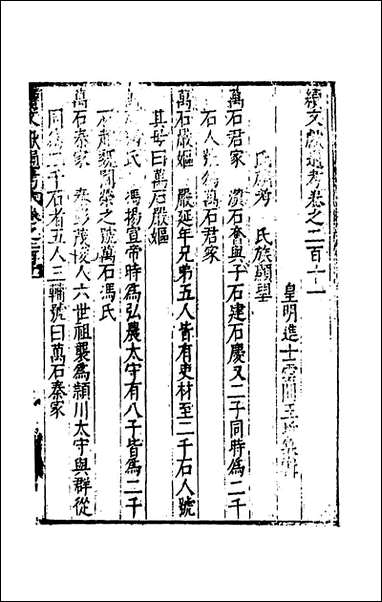 續文獻通考卷之二百十一
皇明進士雲間王圻集
氏族考 氏族顯望
萬石君家 漢石奮與子石建石慶又二子同時爲二千
石人號爲萬石君家
萬石嚴嫗 嚴延年兄弟五人皆有吏材至二千石人號
其母曰萬石嚴嫗
萬石馮氏 馮揚宣帝時爲弘農太守有八子皆爲二千
石趙魏間榮之號萬石馮氏
萬石秦家 秦彭茂陵人六世祖襲爲潁川太守與群從
同爲二千石者五人三輔號曰萬石秦家